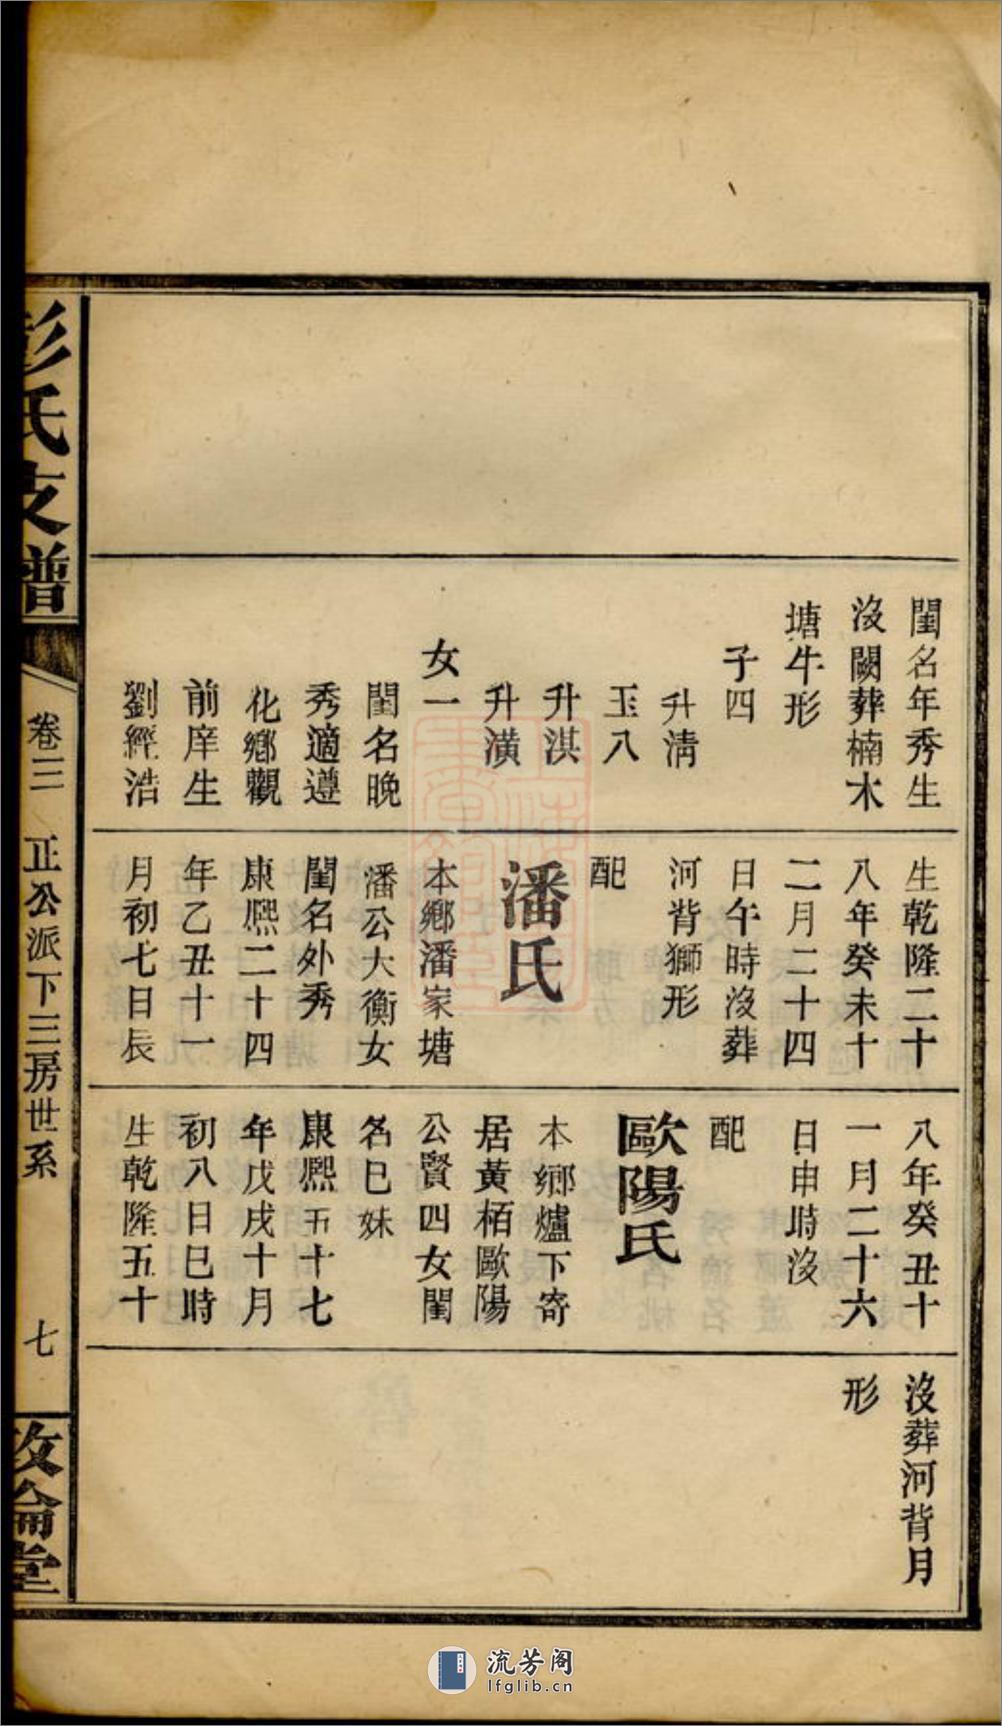 閨名年秀生
沒闕葬楠木
塘牛形
子四
升清
玉八
升淇
升潢
女一
閨名晚
秀適遵
化鄉觀
前庠生
劉經浩
生乾隆二十
八年癸未十
二月二十四
日午時沒葬
河背獅形
配
潘氏
本鄉潘家塘
潘公大衡女
閨名外秀
康熙二十四
年乙丑十一
月初七日辰
八年癸丑十
一月二十六
日申時沒
配
歐陽氏
本鄉爐下寄
居黃栢歐陽
公賢四女閨
名巳妹
康熙五十七
年戊戌十月
初八日巳時
生乾隆五十
沒葬河背月
形
彭氏支譜
卷三 正公派下三房世系 七
敦倫堂
流芳阁
lfglib.cn